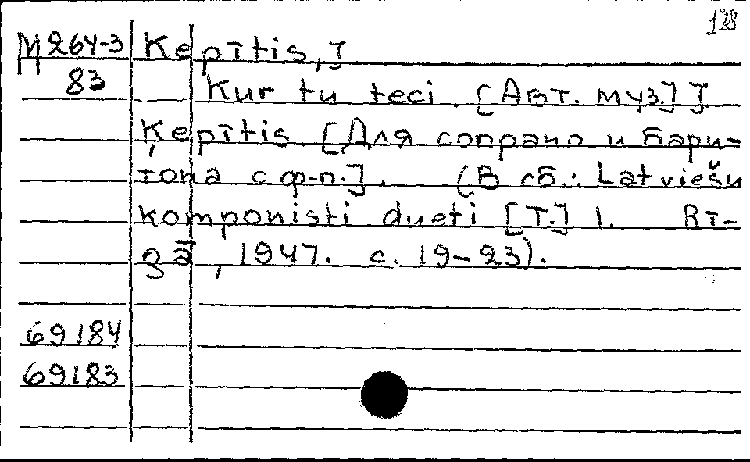 128
М264-3 Ķepītis, J
83 Kur tu teci. [Авт. муз.] J.
Ķepītis. [Для сопрано и бари-
тона с ф-п.]. (В сб.: Latviešu
komponisti dueti [Т.] 1. Rī-
gā, 1947. с. 19-23).
69184
69183